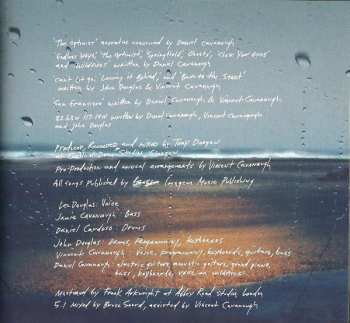 'The Optimist' narrative conceived by Daniel Cavanagh
'Endless Ways', 'The Optimist', 'Springfield', 'Ghosts', 'Close Your Eyes'
and 'Wildfires' written by Daniel Cavanagh
Can't Let Go, Leaving it Behind, and 'Back to the Start'
written by John Douglas & Vincent Cavanagh
San Francisco written by Daniel Cavanagh & Vincent Cavanagh
32.63N 117.14W written by Daniel Cavanagh, Vincent Cavanagh
and John Douglas
Produced, Recorded and mixed by Tony Doogan
at Castle of Doom Studios, Glasgow
Pre-Production and musical arrangements by Vincent Cavanagh
All songs Published by Imagem Music Publishing
Lee Douglas: Voice
Jamie Cavanagh: Bass
Daniel Cardoso: Drums
John Douglas: Drums, Programming, keyboards
Vincent Cavanagh: Voice, programming, keyboards, guitars, bass
Daniel Cavanagh: electric guitars, acoustic guitars, grand piano,
bass, keyboards, voice on wildfires
Mastered by Frank Arkwright at Abbey Road Studios, London
5.1 mixed by Bruce Soord, assisted by Vincent Cavanagh